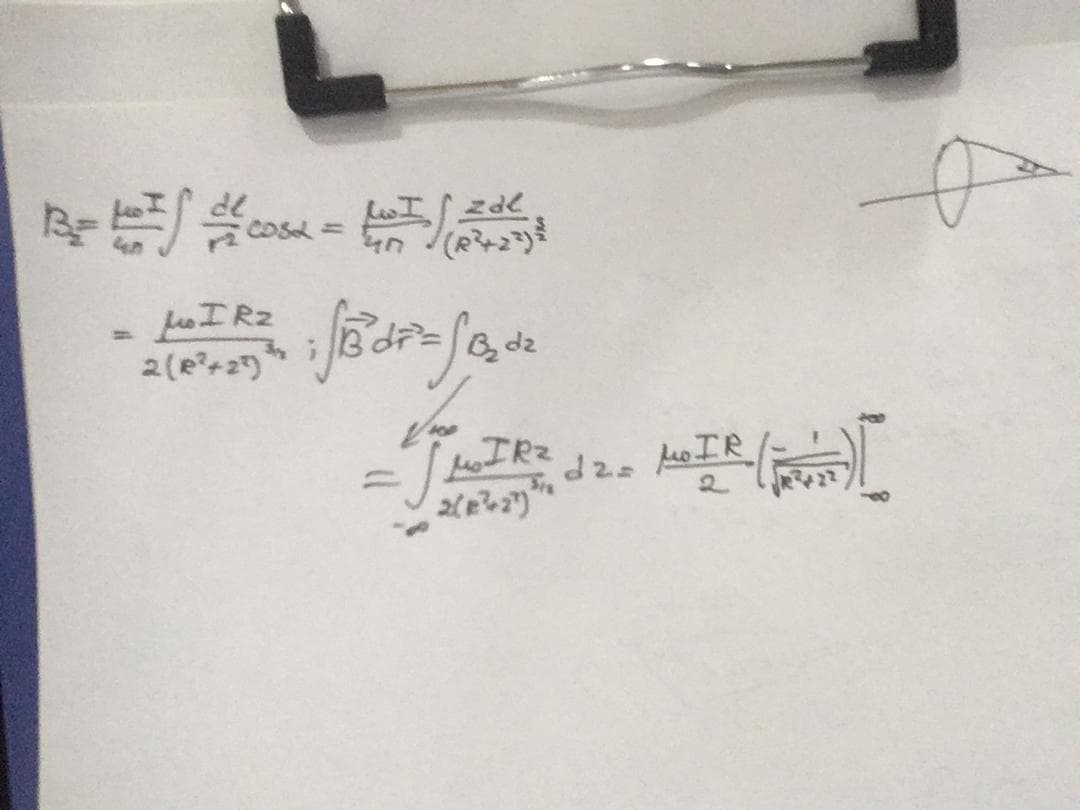 B_z = μ₀I/4π ∫ dl/r² cosα = μ₀I/4π ∫ zdl/(R²+z²)^(3/2)
= μ₀IRz/2(R²+z²)^(3/2) ; ∫B⃗dr⃗ = ∫B_z dz
= ∫_{-∞}^{+∞} μ₀IRz/2(R²+z²)^(3/2) dz = μ₀IR/2 (-1/√(R²+z²))|_{-∞}^{+∞}